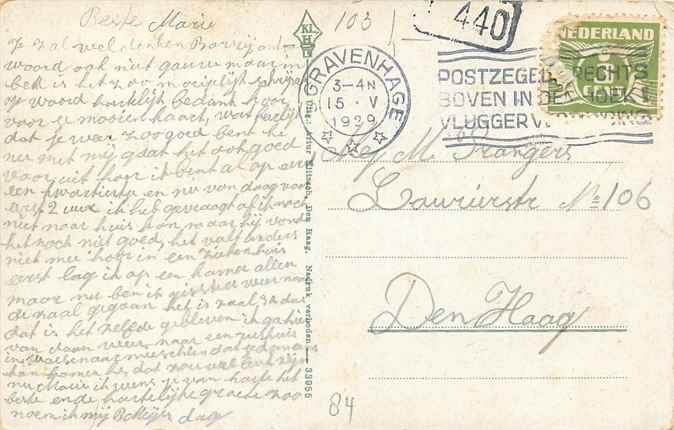 Beste Marie
Je zal wel denken Bory ant-
woord ook niet gauw maar in
bed is het zoo moeilijk schrijve
op woord hartelijk bedankt voor
voor je mooie kaart, wat heerlijk
dat je weer zoo goed bent hé
nu met mij gaat het ook goed
vooruit hoor ik ben al op een
een kwartiertje en nu van daag voor
eerst 2 uur ik heb gevraagt of ik noch
niet naar huis kon maar hij vond
het noch niet goed, het valt anders
niet mee hoor in een ziekenhuis
eerst lag ik op een kamer alleen
maar nu ben ik gister weer naar
de zaal gegaan het is zaal 3 dus
dat is het zelfde gebleven ik ga hier
van daan weer naar een ziekhuis
in naar misschien dat
kan komen hé, dat zou wel leuk zijn
nu Marie ik wens je van harte het
beste en de hartelijke groete zoo
noem ik mij dag
103
440
KL
H
'S GRAVENHAGE
3-4 N
15 · V
1929
POSTZEGEL RECHTS
BOVEN IN DE HOEK
VLUGGER VERZENDING
NEDERLAND
Uitg. Artur Klitzsch, Den Haag. Nadruk verboden. 33955
Mej M. Prangers
Laurierstr No 106
Den Haag
84